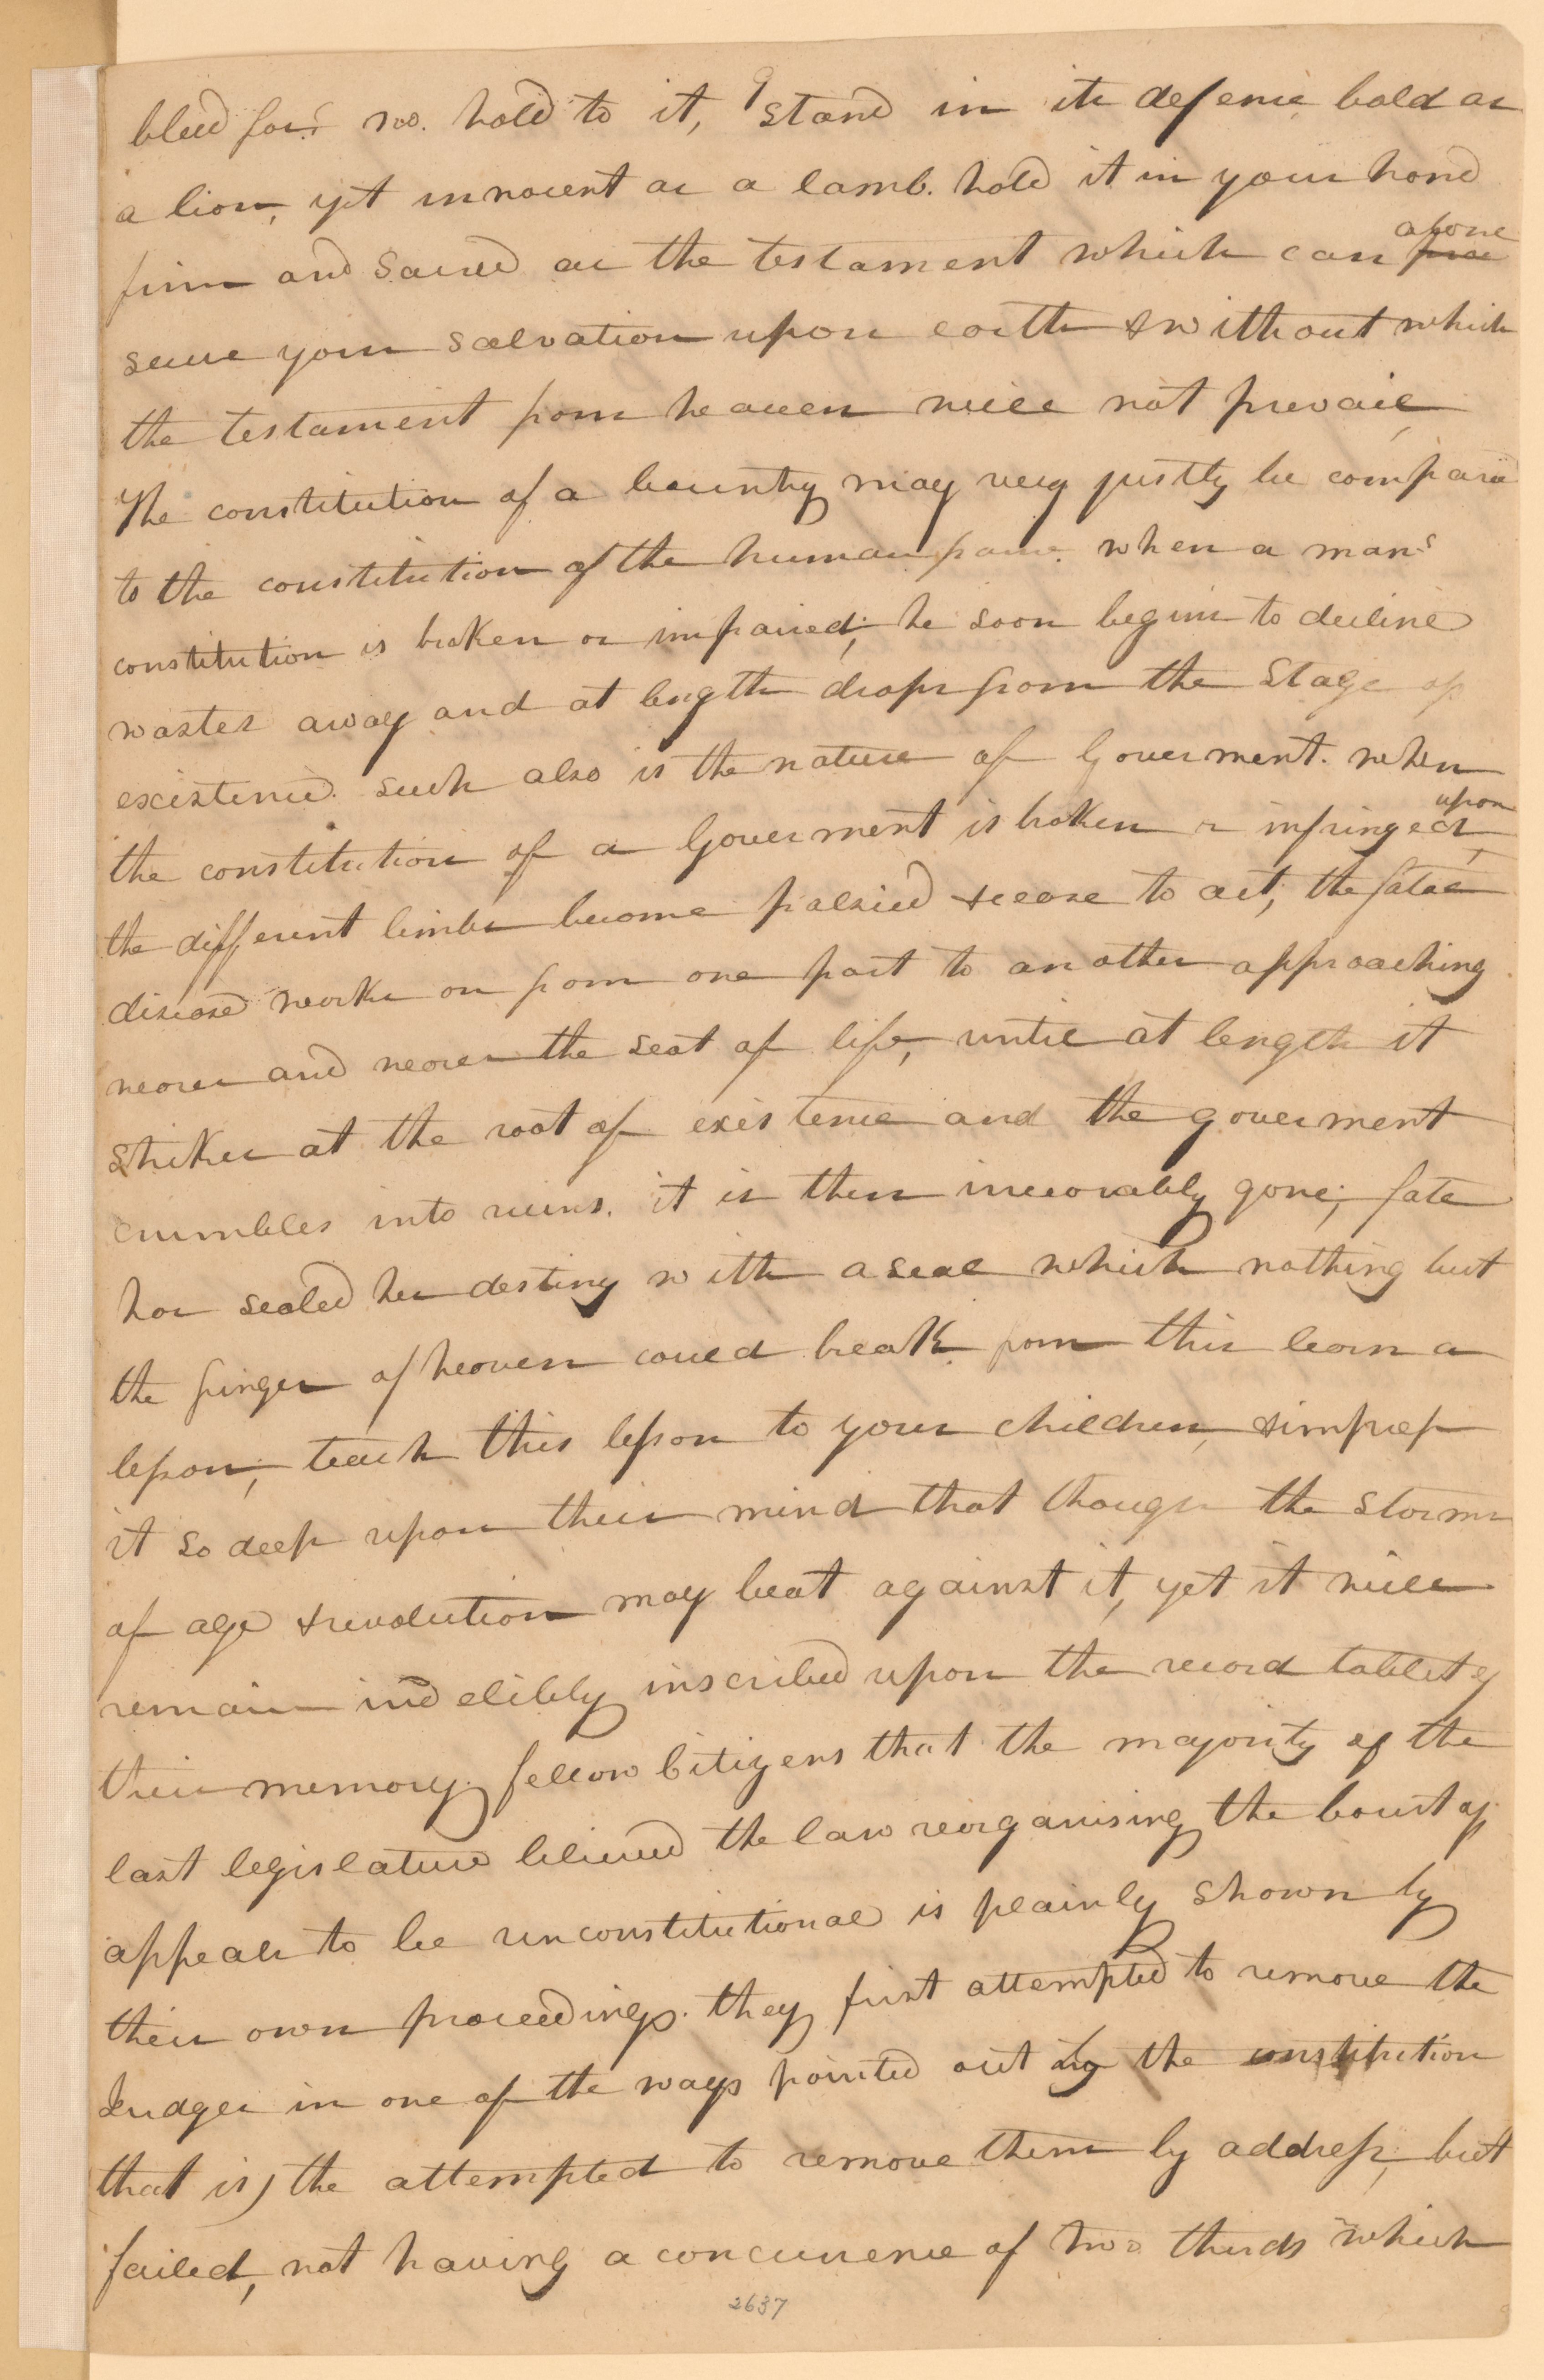 9
bled for? no. hold to it, stand in its defence bold as
a lion, yet innocent as a lamb. hold it in your hand
firm and sacred as the testament which can alone
secure your salvation upon earth & without which
the testament from heaven will not prevail,
The constitution of a Country may very justly be compared
to the constitution of the human frame. when a mans
constitution is broken or impaired, he soon begins to decline
wastes away and at length drops from the Stage of
existence. such also is the nature of Goverment. when
the constitution of a Goverment is broken or infringed, upon
the different limbs become palsied & cease to act, the fatal
disease works on from one part to another approaching
nearer and nearer the seat of life, until at length it
strikes at the root of existence and the goverment
crumbles into ruins. it is then irrecovably gone; fate
has sealed her destiny with a seal which nothing but
the finger of heaven could break. from this learn a
lesson, teach this lesson to your children, & impress
it so deep upon their mind that though the storms
of age & revolution may beat against it, yet it will
remain indelibly inscribed upon the record tablets of
their memory. fellow Citizens that the majority of the
last legislature believed the law reorganising the Court of
appeals to be unconstitutional is plainly shown by
their own proceedings. they first attempted to remove the
Judges in one of the ways pointed out by the constitution
that is) the attempted to remove them by address, but
failed, not having a concurrence of two thirds which
2637